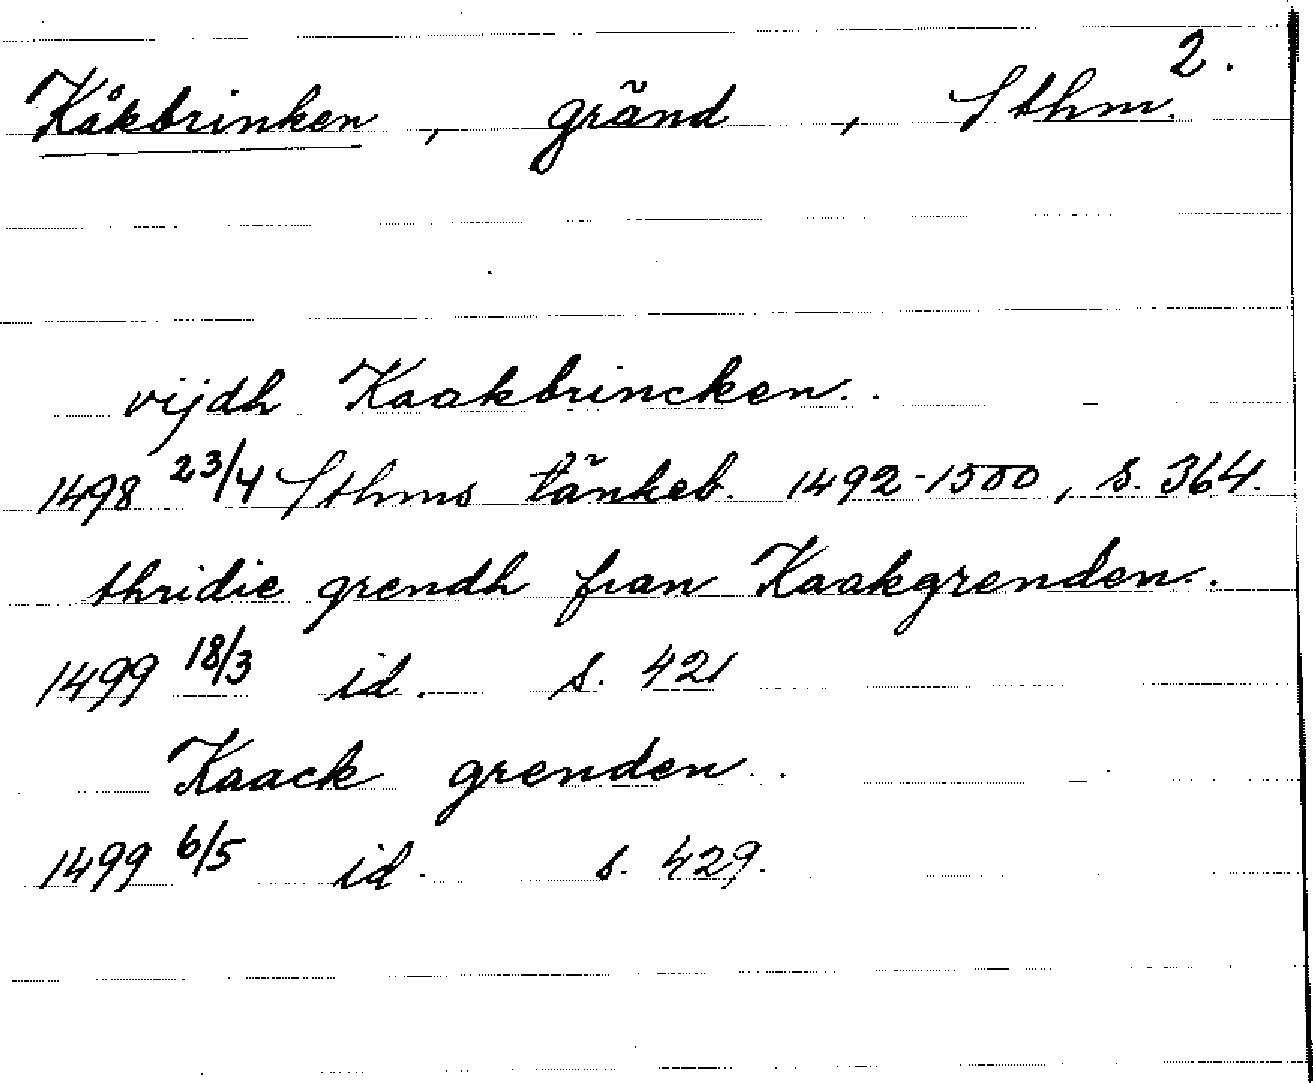 2.
Kåkbrinken, gränd, Sthm.
vijdh Kaakbrincken.
1498 23/4 Sthms tänkeb. 1492-1500, s. 364.
thridie grendh fran Kaakgrenden.
1499 18/3 id. s. 421
Kaack grenden.
1499 6/5 id. s. 429.